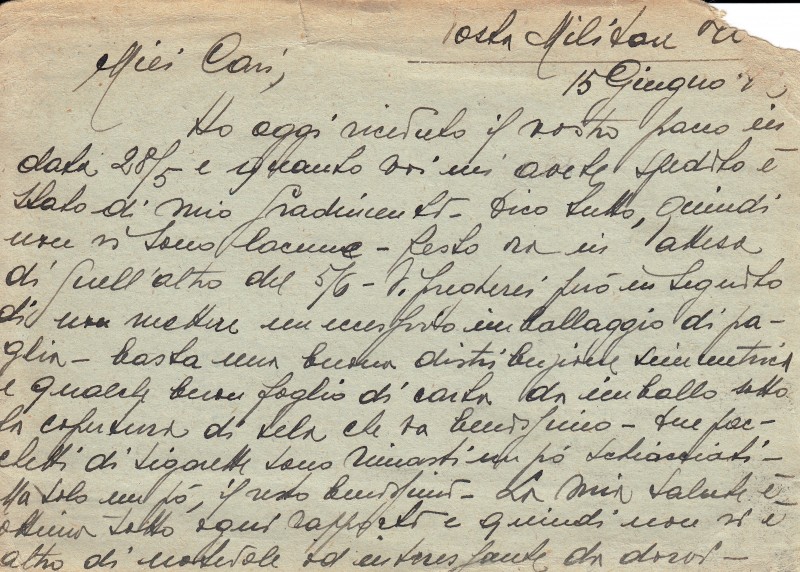 Posta Militare
15 Giugno
Miei Cari,
Ho oggi ricevuto il vostro pacco in
data 28/5 e quanto voi mi avete spedito è
stato di mio gradimento - Dico tutto, quindi
non vi sono lacune - Resto ora in attesa
di quell'altro del 5/6 - Vi pregherei però in seguito
di non mettere un eccessivo imballaggio di pa-
glia - basta una buona distribuzione simmetrica
e qualche buon foglio di carta da imballo sotto
la copertura di tela che va benissimo - Due pac-
chetti di sigarette sono rimasti un pò schiacciati -
Ma solo un pò, il resto benissimo - La mia salute è
ottima sotto ogni rapporto e quindi non vi è
altro di notevole ed interessante da dirvi -